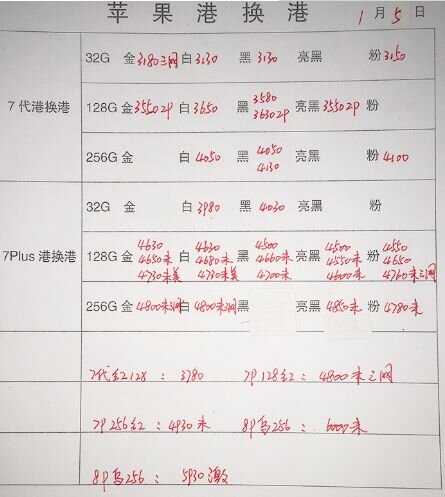 苹果港换港 1月5日
32G 金3180三网 白3130 黑3130 亮黑 粉3150
7代港换港 128G 金3550ZP 白3650 黑3580 3630ZP 亮黑3550ZP 粉
256G 金 白4050 黑4050 4130 亮黑 粉4100
32G 金 白3980 黑4030 亮黑 粉
7Plus港换港 128G 金4630 4650未 4730未美 白4630 4680未 4730未美 黑4500 4660未 4700未 亮黑4500 4550未 4600未 粉4550 4650 4760未三网
256G 金4800未三网 白4800未三网 黑 亮黑4850未 粉4780未
7代红128：3780 7P128红：4800未三网
7P256红：4930未 8P鸟256：6000未
8P鸟256：5930激